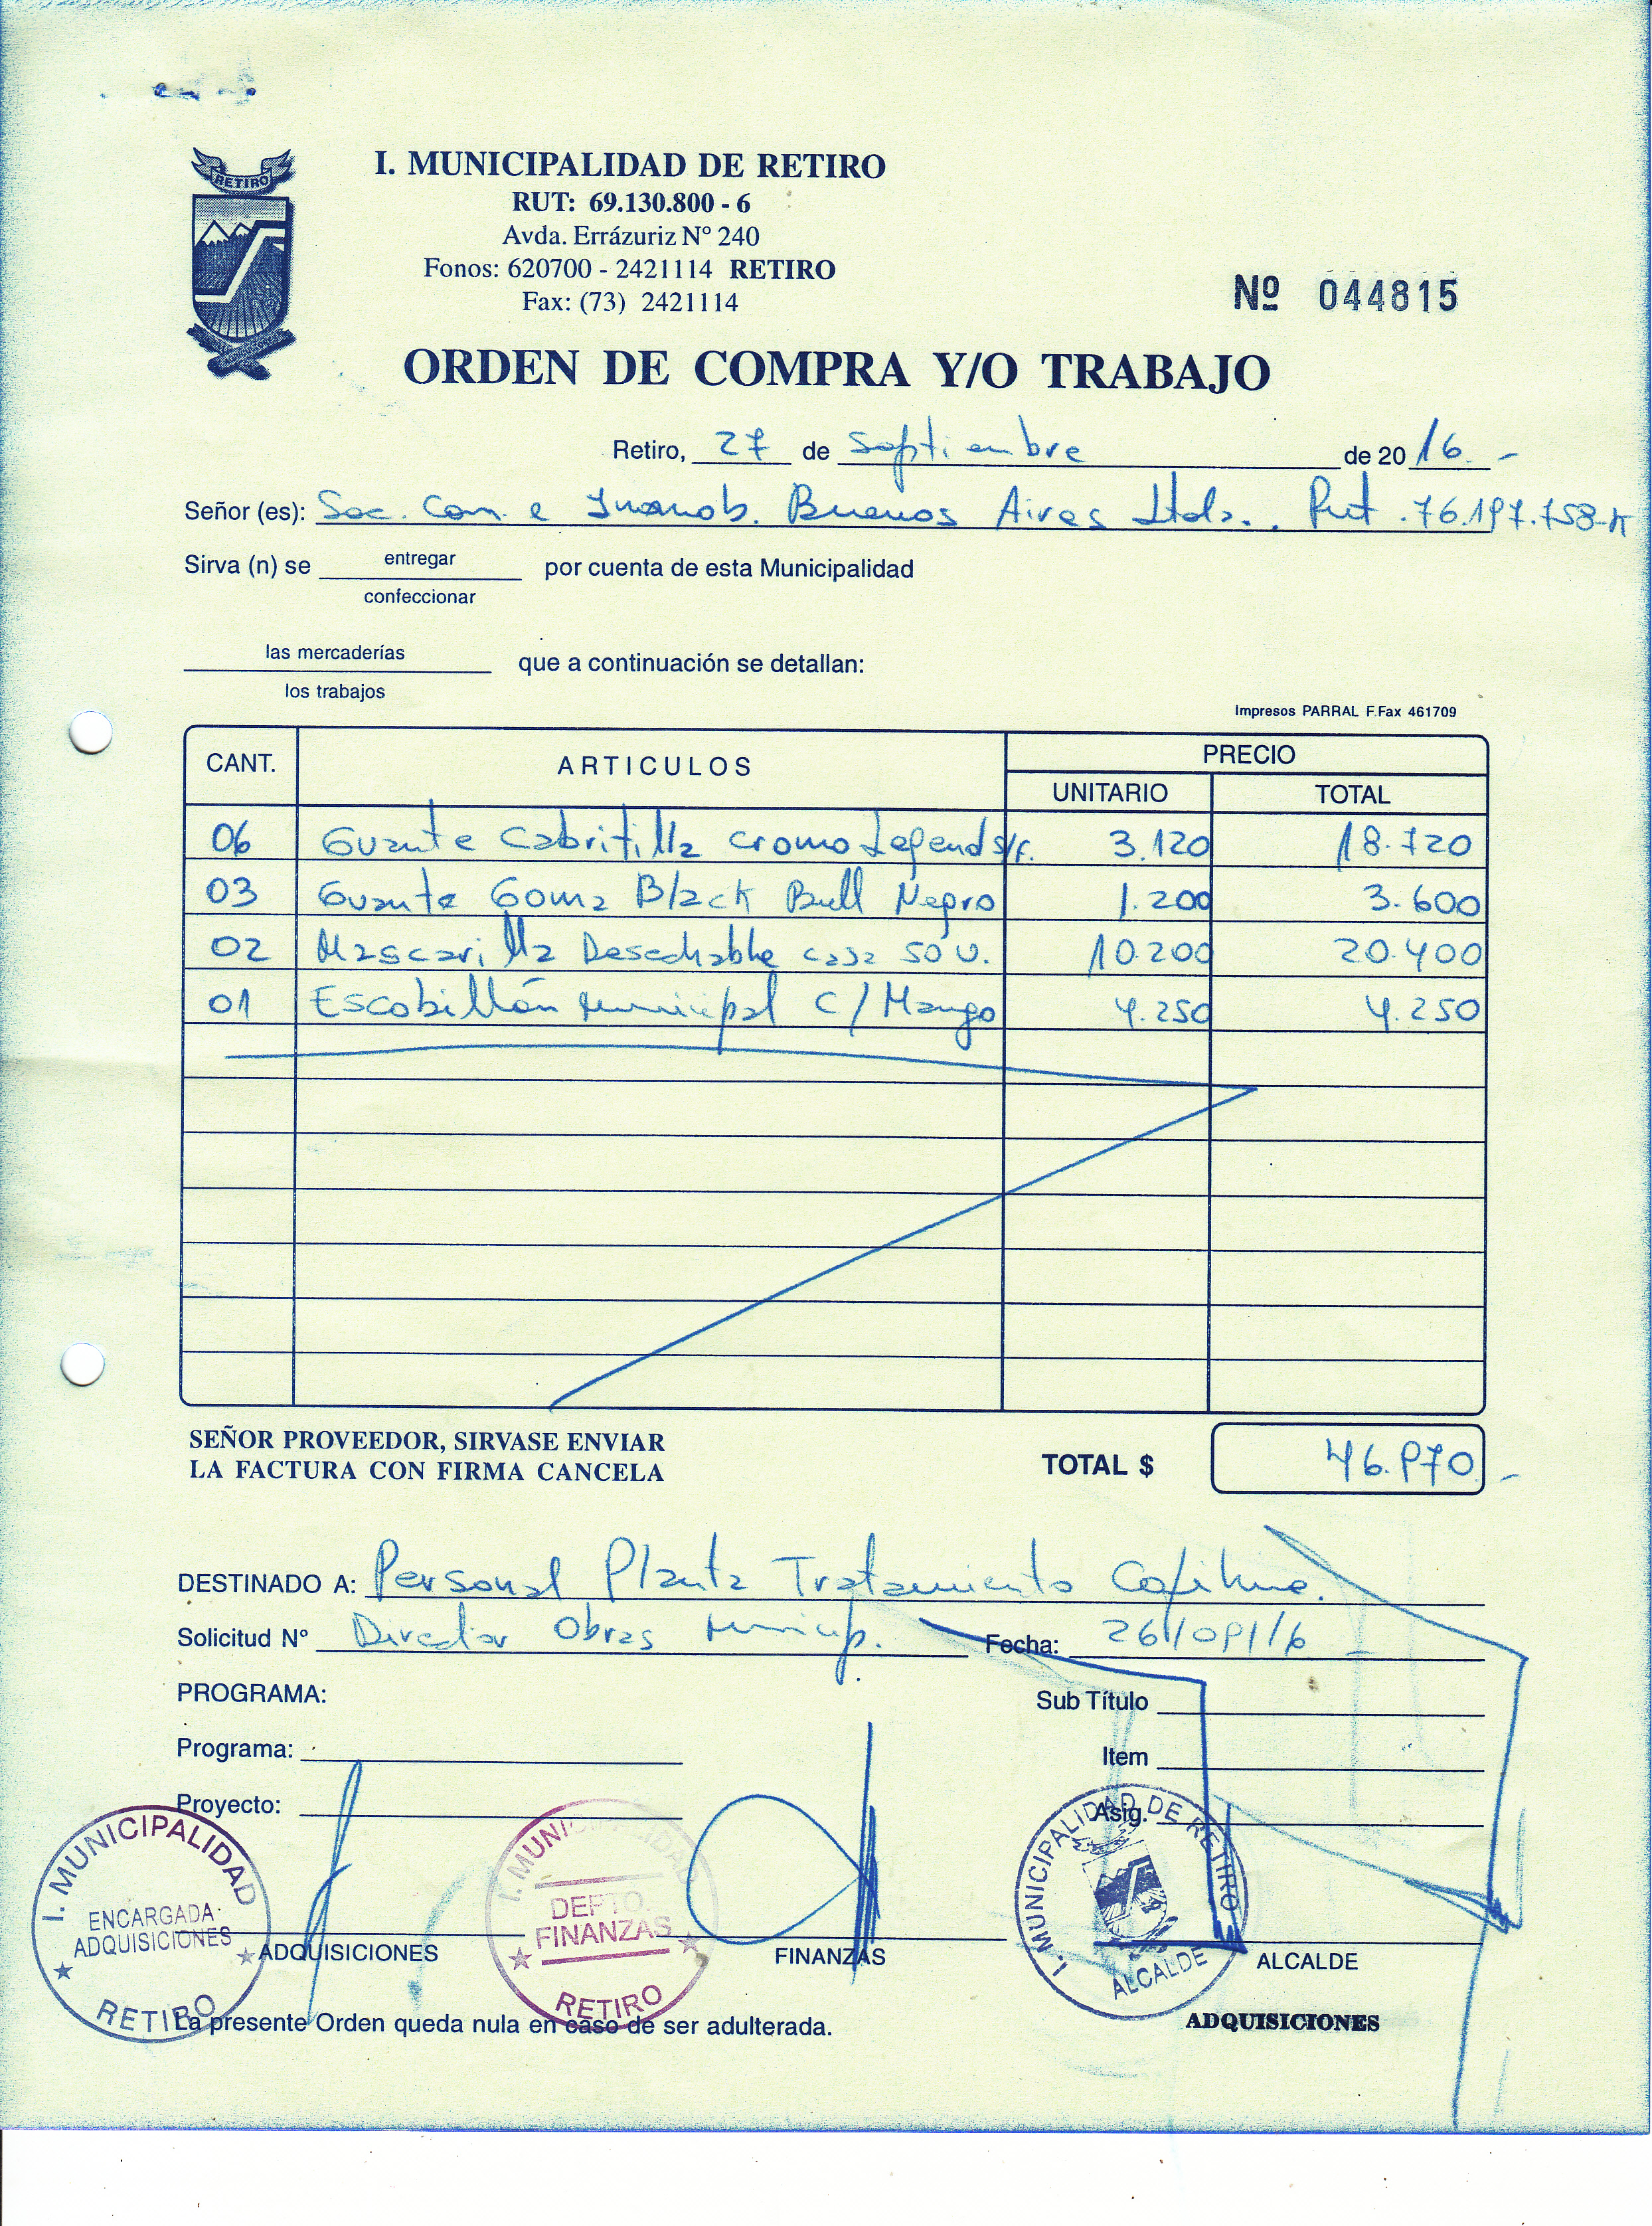 RETIRO
I. MUNICIPALIDAD DE RETIRO
RUT: 69.130.800 - 6
Avda. Errázuriz Nº 240
Fonos: 620700 - 2421114 RETIRO
Fax: (73) 2421114
Nº 044815
ORDEN DE COMPRA Y/O TRABAJO
Retiro, 27 de Septiembre de 20 16.-
Señor (es): Soc. Com. e Inmob. Buenos Aires Ltda.. Rut. 76.197.758-K
Sirva (n) se entregar por cuenta de esta Municipalidad
confeccionar
las mercaderías que a continuación se detallan:
los trabajos
Impresos PARRAL F.Fax 461709
CANT. ARTICULOS PRECIO
UNITARIO TOTAL
06 Guante Cabritilla Cromo Legend s/f. 3.120 18.720
03 Guante Goma Black Bull Negro 1.200 3.600
02 Mascarilla Desechable caja 50 U. 10.200 20.400
01 Escobillón Municipal C/Mango 4.250 4.250
SEÑOR PROVEEDOR, SIRVASE ENVIAR
LA FACTURA CON FIRMA CANCELA
TOTAL $ 46.970.-
DESTINADO A: Personal Planta Tratamiento Copihue.
Solicitud Nº Director Obras Municip. Fecha: 26/09/16
PROGRAMA: Sub Título
Programa: Item
Proyecto: Asig.
I. MUNICIPALIDAD
ENCARGADA
ADQUISICIONES
RETIRO
I. MUNICIPALIDAD
DEPTO.
FINANZAS
RETIRO
I. MUNICIPALIDAD DE RETIRO
ALCALDE
ADQUISICIONES FINANZAS ALCALDE
La presente Orden queda nula en caso de ser adulterada.
ADQUISICIONES